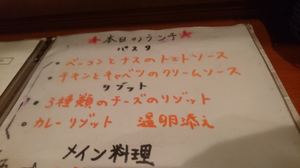 ★本日のランチ★
パスタ
・ベーコンとナスのトマトソース
・チキンとキャベツのクリームソース
リゾット
・3種類のチーズのリゾット
・カレーリゾット 温卵添え
メイン料理